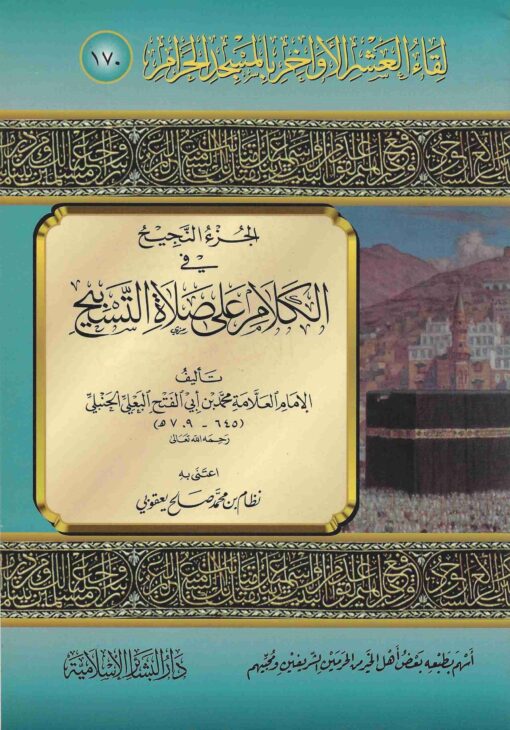 لِقَاءُ العَشْرِ الأَوَاخِرِ بِالمَسْجِدِ الحَرَامِ
١٧٠
الجُزْءُ النَّجِيحُ
في
الكَلَامِ عَلَى صَلَاةِ التَّسْبِيحِ
تَأليفُ
الإمَامِ العَلَّامَةِ محمّد بن أبي الفَتْحِ البَعْلِيِّ الحَنْبَلِيِّ
(٦٤٥ - ٧٠٩ هـ)
رَحِمَهُ اللهُ تَعَالَى
اعتَنَى بِهِ
نظام بن محمّد صالح يعقوبي
أَسْهَمَ بِطَبْعِهِ بَعْضُ أَهْلِ الخَيْرِ مِنَ الحَرَمَيْنِ الشَّرِيفَيْنِ وَمُحِبِّيهِم
دَارُ البَشَائِرِ الإِسْلَامِيَّة